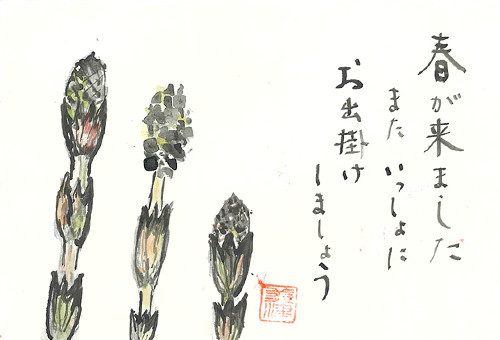 春が来ました
また いっしょに
お出掛け
しましょう